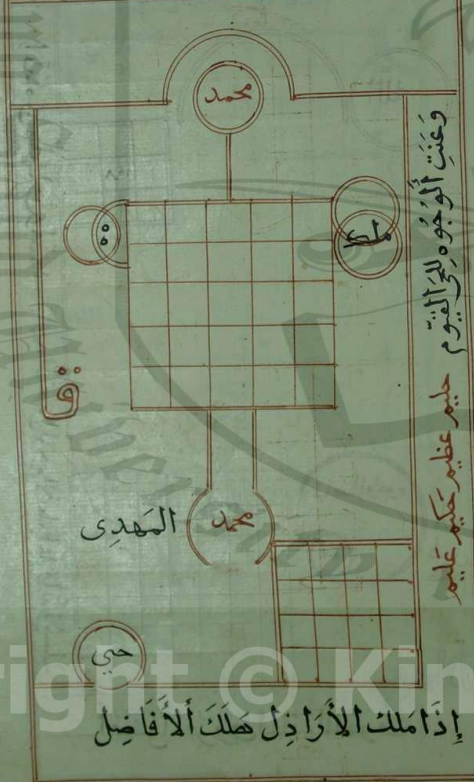 محمد
وَعَنَتِ ٱلْوُجُوهِ لِلحَىِّ القَيّوم
حليم عظيم حكيم عليم
محمد
المَهدِى
حيي
إذَا مَلكَ الأرَاذِل هَلَكَ ألأفَاضِل
right © Kin